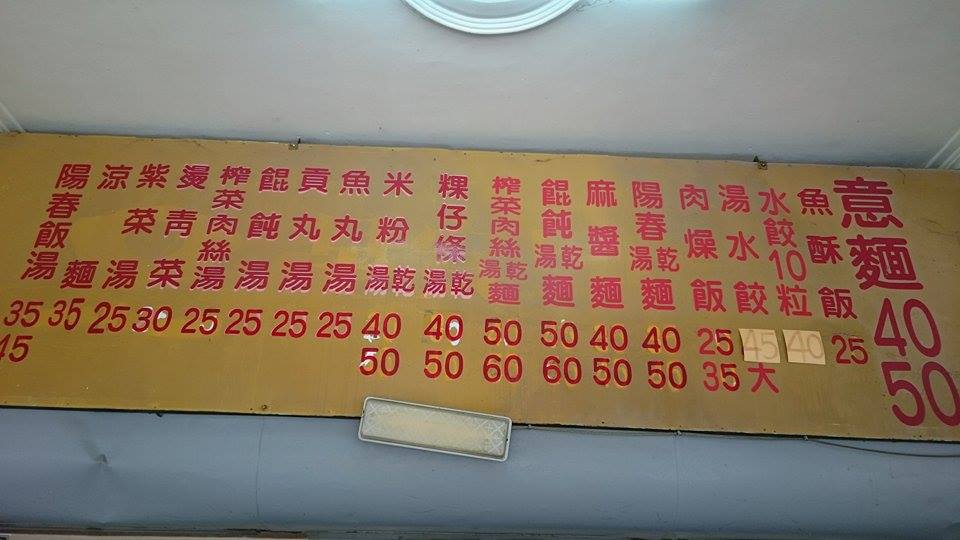 意麵 40 50
魚酥飯 25
水餃10粒 40
湯水餃 45 大
肉燥飯 25 35
陽春湯乾麵 40 50
麻醬麵 40 50
餛飩湯乾麵 50 60
榨菜肉絲湯乾麵 50 60
粿仔條湯乾 40 50
米粉湯乾 40 50
魚丸湯 25
貢丸湯 25
餛飩湯 25
榨菜肉絲湯 25
燙青菜 30
紫菜湯 25
涼麵 35
陽春飯湯 35 45